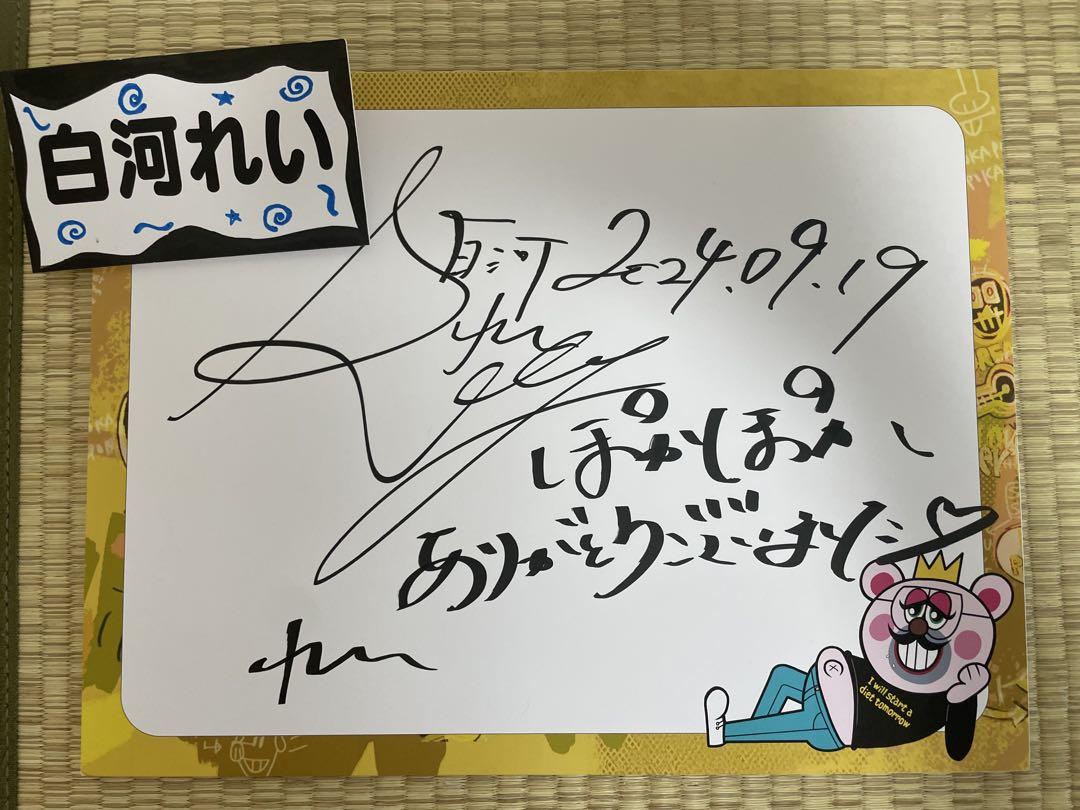 白河れい
白河 2024.09.19
れい
ぽかぽか
ありがとうございました
れい
I will start a
diet tomorrow